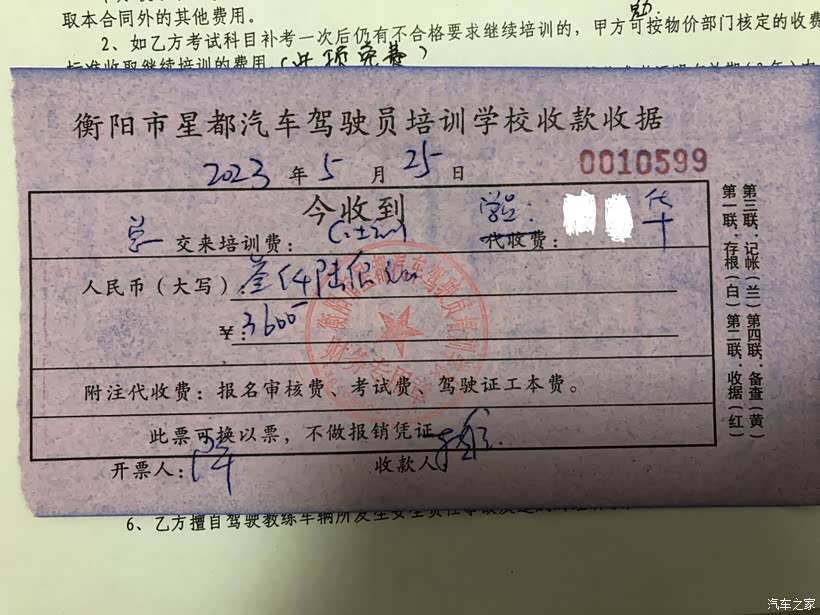 取本合同外的其他费用。
2、如乙方考试科目补考一次后仍有不合格要求继续培训的，甲方可按物价部门核定的收费
标准收取继续培训的费用
衡阳市星都汽车驾驶员培训学校收款收据
2023 年 5 月 25 日
0010599
今收到
交来培训费：
学员：
代收费：
华
人民币（大写）：叁仟陆佰元
￥：3600
附注代收费：报名审核费、考试费、驾驶证工本费。
此票可换以票，不做报销凭证
开票人：
收款人
第一联：存根（白）第二联：收据（红）
第三联：记帐（兰）第四联：备查（黄）
衡阳市星都汽车驾驶员培训学校
财务专用章
6、乙方擅自驾驶教练车辆所发生
汽车之家